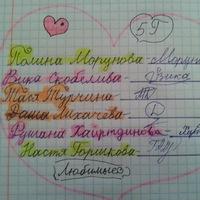 5Г
Полина Моргунова - Моргун
Вика Скобелива - Вика
Тася Турчина - ТТ
Даша Лихачёва - Д
Рушана Хайртдинова -
Настя Горшкова -
(Любимие)